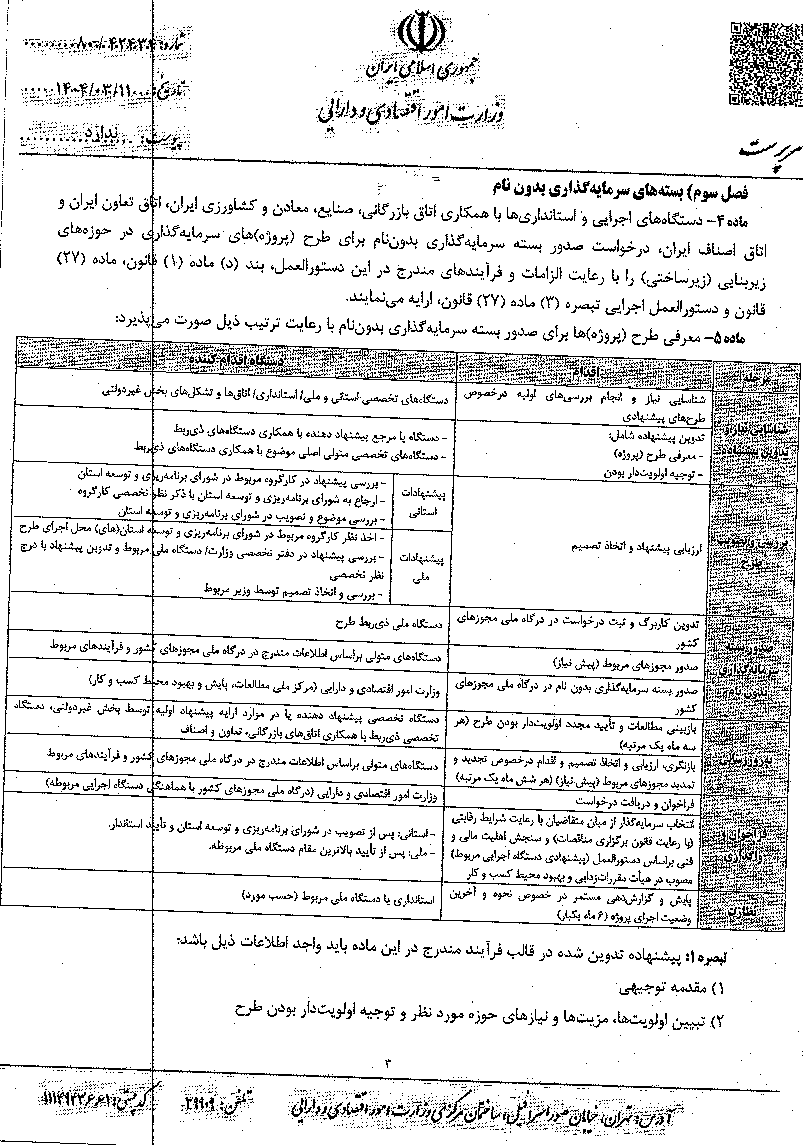 جمهوری اسلامی ایران
وزارت امور اقتصادی و دارایی
شماره:
تاریخ: ۱۴۰۴/۰۳/۱۱
پیوست: ندارد
سرپرست
فصل سوم) بسته‌های سرمایه‌گذاری بدون نام
ماده ۴- دستگاه‌های اجرایی و استانداری‌ها با همکاری اتاق بازرگانی، صنایع، معادن و کشاورزی ایران، اتاق تعاون ایران و
اتاق اصناف ایران، درخواست صدور بسته سرمایه‌گذاری بدون‌نام برای طرح (پروژه)های سرمایه‌گذاری در حوزه‌های
زیربنایی (زیرساختی) را با رعایت الزامات و فرآیندهای مندرج در این دستورالعمل، بند (د) ماده (۱) قانون، ماده (۲۷)
قانون و دستورالعمل اجرایی تبصره (۳) ماده (۲۷) قانون، ارایه می‌نمایند.
ماده ۵- معرفی طرح (پروژه)ها برای صدور بسته سرمایه‌گذاری بدون‌نام با رعایت ترتیب ذیل صورت می‌پذیرد:
مرحله
اقدام
دستگاه اقدام کننده
شناسایی نیاز و
تدوین پیشنهاده
شناسایی نیاز و انجام بررسی‌های اولیه درخصوص
طرح‌های پیشنهادی
دستگاه‌های تخصصی استانی و ملی/ استانداری/ اتاق‌ها و تشکل‌های بخش غیردولتی
تدوین پیشنهاده شامل:
- معرفی طرح (پروژه)
- توجیه اولویت‌دار بودن
- دستگاه یا مرجع پیشنهاد دهنده با همکاری دستگاه‌های ذی‌ربط
- دستگاه‌های تخصصی متولی اصلی موضوع با همکاری دستگاه‌های ذی‌ربط
طرح
ارزیابی پیشنهاد و اتخاذ تصمیم
پیشنهادات
استانی
- بررسی پیشنهاد در کارگروه مربوط در شورای برنامه‌ریزی و توسعه استان
- ارجاع به شورای برنامه‌ریزی و توسعه استان با ذکر نظر تخصصی کارگروه
- بررسی موضوع و تصویب در شورای برنامه‌ریزی و توسعه استان
پیشنهادات
ملی
- اخذ نظر کارگروه مربوط در شورای برنامه‌ریزی و توسعه استان(های) محل اجرای طرح
- بررسی پیشنهاد در دفتر تخصصی وزارت/ دستگاه ملی مربوط و تدوین پیشنهاد با درج
نظر تخصصی
- بررسی و اتخاذ تصمیم توسط وزیر مربوط
صدور بسته
سرمایه‌گذاری
بدون نام
تدوین کاربرگ و ثبت درخواست در درگاه ملی مجوزهای
کشور
دستگاه ملی ذی‌ربط طرح
صدور مجوزهای مربوط (پیش نیاز)
دستگاه‌های متولی براساس اطلاعات مندرج در درگاه ملی مجوزهای کشور و فرآیندهای مربوط
صدور بسته سرمایه‌گذاری بدون نام در درگاه ملی مجوزهای
کشور
وزارت امور اقتصادی و دارایی (مرکز ملی مطالعات، پایش و بهبود محیط کسب و کار)
به‌روزرسانی
بازبینی مطالعات و تأیید مجدد اولویت‌دار بودن طرح (هر
سه ماه یک مرتبه)
دستگاه تخصصی پیشنهاد دهنده یا در موارد ارایه پیشنهاد اولیه توسط بخش غیردولتی، دستگاه
تخصصی ذی‌ربط با همکاری اتاق‌های بازرگانی، تعاون و اصناف
بازنگری، ارزیابی و اتخاذ تصمیم و اقدام درخصوص تجدید و
تمدید مجوزهای مربوط (پیش نیاز) (هر شش ماه یک مرتبه)
دستگاه‌های متولی براساس اطلاعات مندرج در درگاه ملی مجوزهای کشور و فرآیندهای مربوط
فراخوان و
واگذاری
فراخوان و دریافت درخواست
وزارت امور اقتصادی و دارایی (درگاه ملی مجوزهای کشور با هماهنگی دستگاه اجرایی مربوطه)
انتخاب سرمایه‌گذار از میان متقاضیان با رعایت شرایط رقابتی
(با رعایت قانون برگزاری مناقصات) و سنجش اهلیت مالی و
فنی براساس دستورالعمل (پیشنهادی دستگاه اجرایی مربوط)
مصوب در هیأت مقررات‌زدایی و بهبود محیط کسب و کار
- استانی: پس از تصویب در شورای برنامه‌ریزی و توسعه استان و تأیید استاندار.
- ملی: پس از تأیید بالاترین مقام دستگاه ملی مربوطه.
نظارت
پایش و گزارش‌دهی مستمر در خصوص نحوه و آخرین
وضعیت اجرای پروژه (۶ ماه یکبار)
استانداری یا دستگاه ملی مربوط (حسب مورد)
تبصره ۱: پیشنهاده تدوین شده در قالب فرآیند مندرج در این ماده باید واجد اطلاعات ذیل باشد:
۱) مقدمه توجیهی
۲) تبیین اولویت‌ها، مزیت‌ها و نیازهای حوزه مورد نظر و توجیه اولویت‌دار بودن طرح
۳
آدرس: تهران، خیابان صوراسرافیل، ساختمان مرکزی وزارت امور اقتصادی و دارایی
تلفن: ۳۹۹۰۹
کدپستی: